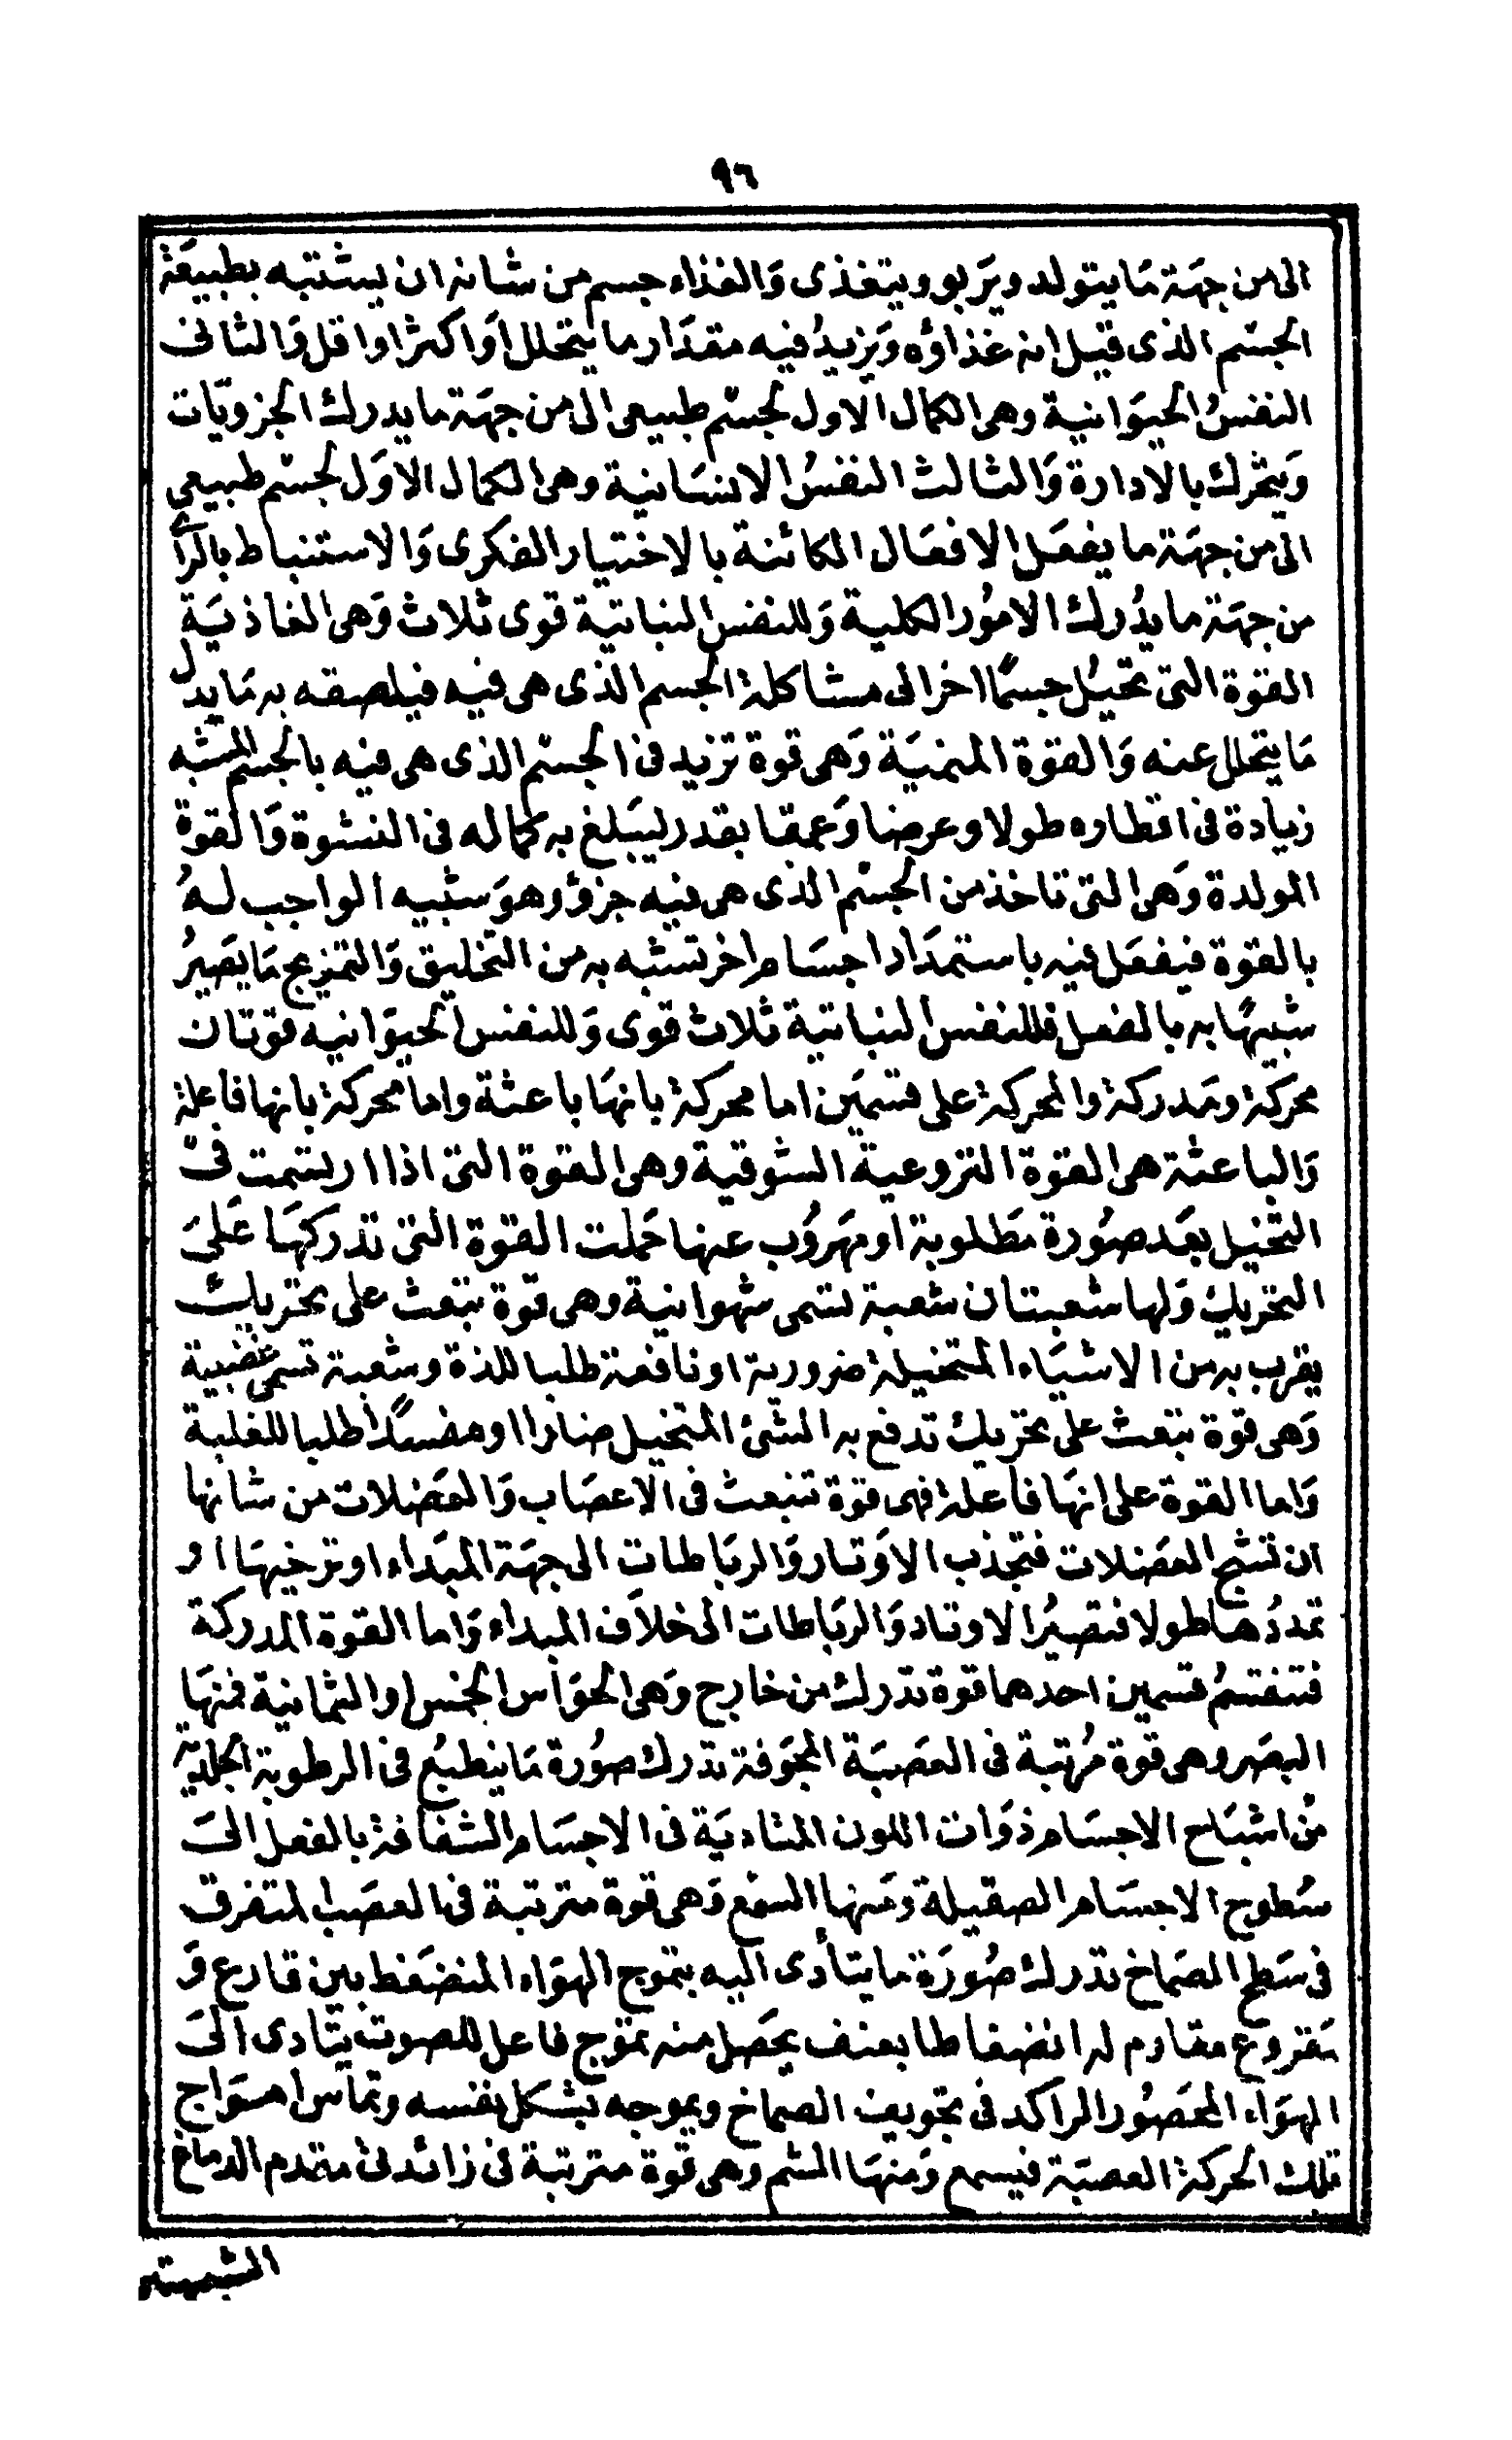 ٩٦
الى من جهَة مَا يتولد ويَربو ويتغذى وَالغذاء جسم من شانه ان يشتبه بطبيعَة
الجسْم الذى قيل انه غذاؤه وَيزيدُ فيه مقدَار ما يتحلل اَو اكثرا واقل وَالثانى
النفسُ الحيوَانية وهى الكمال الاول لجسْم طبيعى الى من جهَة ما يدرك الجزويّات
وَيتحرك بالادارة وَالثالث النفسُ الانسَانية وهى الكمال الاوَل لجسْم طبيعى
الى من جهَة ما يفعَل الافعَال الكائنة بالاختيار الفكرى وَالاستنباط بالرأى
من جهَة ما يدُرك الامُور الكلية وَللنفس النباتية قوى ثلاث وَهى الغاذيَة
القوة التى تحيُل جسمًا اخر الى مشاكلة الجسم الذى هى فيه فيلصقه به مَا يدل
مَا يتحلل عنه وَالقوة المنميَة وَهى قوة تزيد فى الجسْم الذى هى فيه بالجسم المشبه
زيادة فى اقطاره طولا وعرضا وَعمقا بقدر ليَبلغ به كماله فى النشوة وَالقوة
المولدة وَهى التى تاخذ من الجسْم الذى هى فيه جزؤ وهوَ شبيه الواجب لهُ
بالقوة فيفعَل فيه باستمدَاد اجسَام اخر تتشبه به من التخليق وَالتمزيج مَا يصَيرُ
شبيهًا به بالفعل فللنفس النباتية ثلاث قوى وَللنفس الحيوَانيه قوتان
محركة ومَدركة والمحركة على قسمَين اما محركة بانهَا باعثة واما محركة بانها فاعلة
وَالباعثة هى القوة النزوعية الشوقية وهى القوة التى اذا ارتسمت فى
التخيل بعَد صُورة مَطلوبة او مهَروُب عنها حَملت القوة التى تدركهَا عَلىَ
التحريك وَلها شعبتان شعبة تسمى شهوانية وهى قوة تبعث على تحريك
يقرب به من الاشيَاء المتخيلة ضرورية او نافعة طلبا للذة وشعبة تسمى غضبية
وَهى قوة تبعث على تحريك تدفع به الشئ المتخيل ضارا او مفسدًا طلبا للغلبة
وَاما القوة على انهَا فاعلة فهى قوة تنبعث فى الاعصَاب وَالعضَلات من شانها
ان تشنج العضَلات فتجذب الاَوتار وَالربَاطات الى جهَة المبَداء او ترخيهَا او
تمددُها طولا فتصيُر الاوتاد وَالربَاطات الى خلاَف المبداء وَاما القوة المدركة
فتنقسمُ قسمين احدهما قوة تدرك من خارج وَهى الحوَاس الخمس او الثمانية فمنهَا
البصَر وهى قوة مُرتبة فى العصَبَة المجوَفة تدرك صُورة مَا ينطبُع فى الرطوبة الجلدية
منْ اشبَاح الاجسَام ذوَات اللون المتاديَة فى الاجسَام الشفافة بالفعل الىَ
سُطوح الاجسَام الصقيلة ومَنها السمْع وَهى قوة مترتبة فى العصَب المتفرق
فى سَطح الصمَاخ تدرك صُورَة ما يتأدى اليه بتموج الهوَاء المنضغَط بين قارع وَ
مَقروع مقاوم له انضغاطا بعنف يحَصل منه تموج فاعل للصوت يتادى الىَ
الهوَاء المحصُور الراكد فى تجويف الصماخ ويموجه بشكل نفسه وتماس امــوَاج
تلك الحركة العصبَة فيسمع وَمنهَا الشم وهى قوة مترتبة فى زائدتى مقدم الدماغ
الشبيهتين